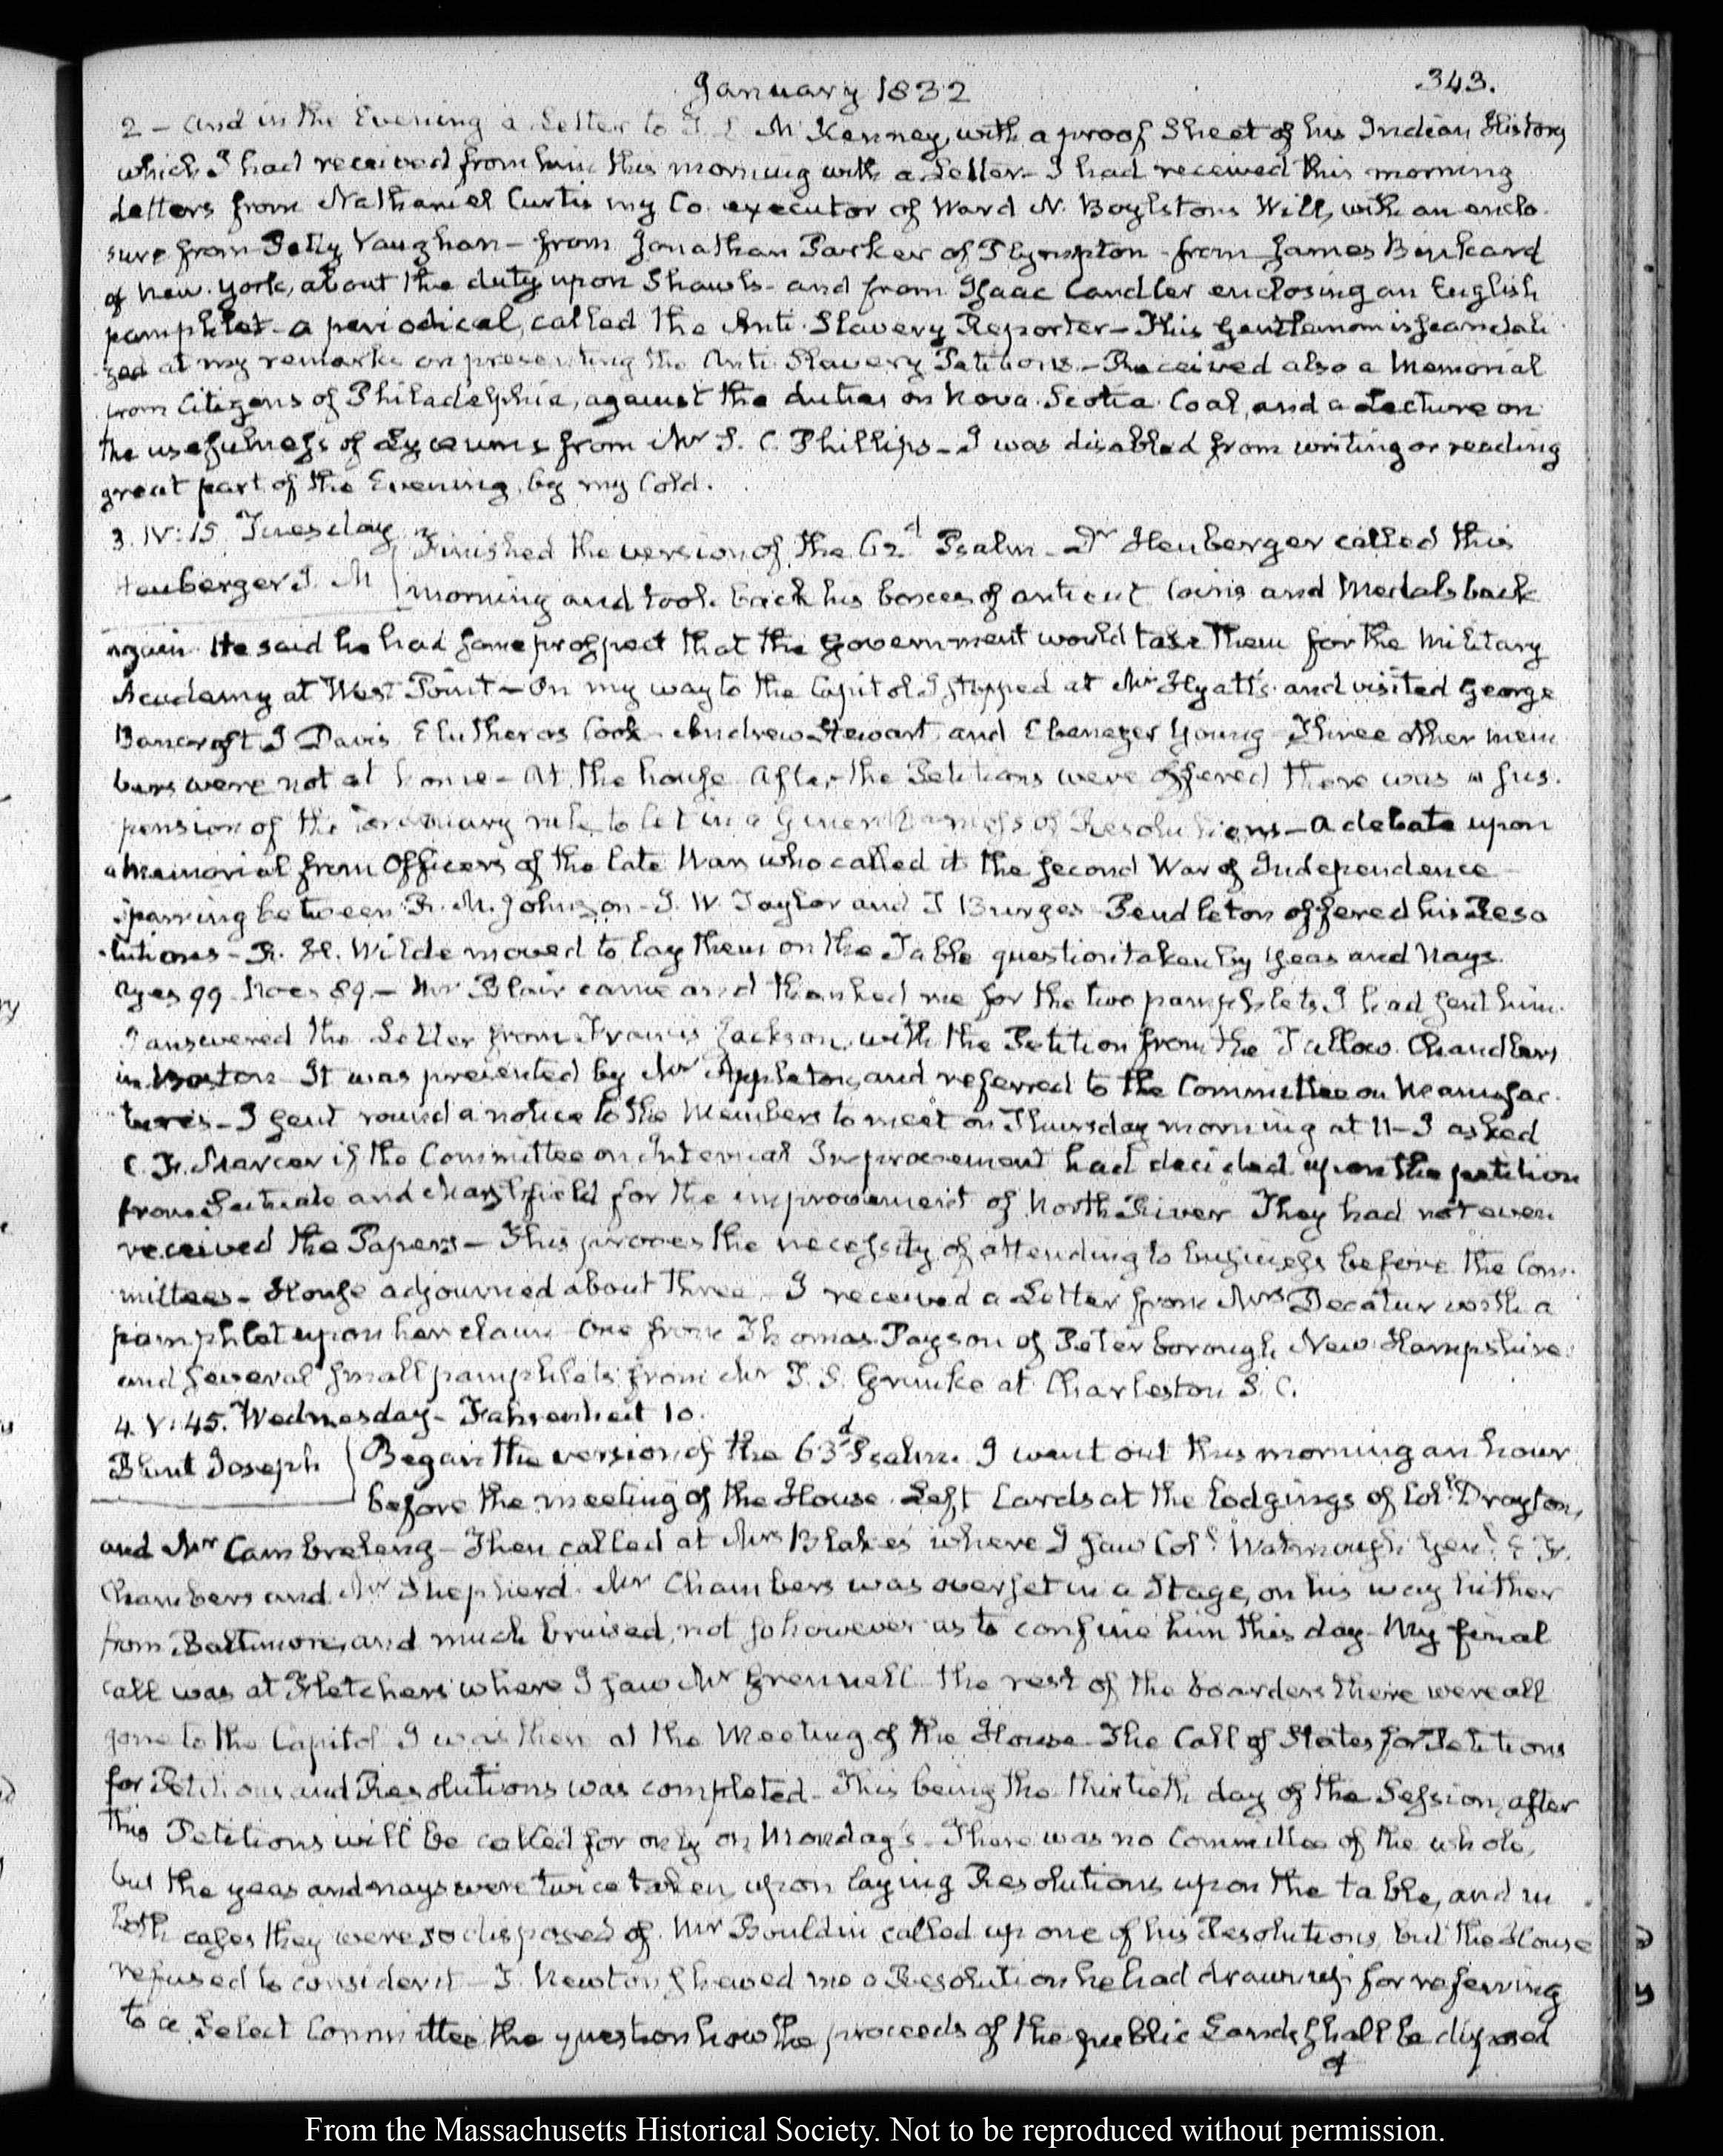 January 1832
343.
2 – and in the Evening a Letter to T. L. McKenney, with a proof Sheet of his Indian History
which I had received from him this morning with a Letter – I had received this morning
Letters from Nathaniel Curtis my Co. executor of Ward N. Boylston's Will, with an enclo-
sure from Petty Vaughan – from Jonathan Parker of Plympton – from James
of New-York, about the duty upon Shawls – and from Isaac Candler enclosing an English
pamphlet – a periodical, called the Anti-Slavery Reporter – This Gentleman is scandali-
zed at my remarks on presenting the Anti Slavery Petitions. – Received also a Memorial
from Citizens of Philadelphia, against the duties on Nova-Scotia Coal, and a Lecture on
the usefulness of Lyceums from Mr S. C. Phillips – I was disabled from writing or reading
great part of the Evening, by my Cold.
3. IV:15. Tuesday
Heuberger J. M
Finished the version of the 62d Psalm – Dr Heuberger called this
morning and took back his boxes of antient Coins and Medals back
again. He said he had some prospect that the Government would take them for the Military
Academy at West Point – On my way to the Capitol I stopped at Mr Hyatt's and visited George
Bancroft J Davis, Elutheros Cook – Andrew Stewart, and Ebenezer Young – Three other mem-
bers were not at home – At the house after the Petitions were offered there was a sus-
pension of the ordinary rule to let in a of Resolutions – A debate upon
a Memorial from Officers of the late War who called it the second War of Independence –
sparring between R. M. Johnson – J. W. Taylor and T Burges – Pendleton offered his Reso-
lutions – R. H. Wilde moved to lay them on the Table question taken by Yeas and Nays.
Ayes 99. Noes 89. – Mr Blair came and thanked me for the two pamphlets I had sent him.
I answered the Letter from Francis Jackson, with the Petition from the Tallow Chandlers
in Boston – It was presented by Mr Appleton, and referred to the Committee on Manufac-
tures – I sent round a notice to the Members to meet on Thursday morning at 11 – I asked
C. F. Mercer if the Committee on Internal Improvement had decided upon the petition
from Scituate and Marshfield for the improvement of North River – They had not even
received the Papers – This proves the necessity of attending to business before the Com-
mittees – House adjourned about three – I received a Letter from Mrs Decatur with a
pamphlet upon her claim – One from Thomas Payson of Peterborough New-Hampshire
and several small pamphlets from Mr T. S. Grimke at Charleston S. C.
4. V:45. Wednesday – Fahrenheit 10.
Blunt Joseph
Began the version of the 63d Psalm. I went out this morning an hour
before the meeting of the House. Left Cards at the Lodgings of Coll Drayton,
and Mr Cambreleng – Then called at Mrs Blake's where I saw Coll Watmough Genl E. F.
Chambers and Mr Shepherd. Mr Chambers was overset in a Stage, on his way hither
from Baltimore, and much bruised, not so however as to confine him this day – My final
call was at Fletchers where I saw Mr Grennell – the rest of the boarders there were all
gone to the Capitol – I was then at the Meeting of the House – The Call of States for Petitions
for Petitions and Resolutions was completed – This being the thirtieth day of the Session, after
this Petitions will be called for only on Monday's – There was no Committee of the whole,
but the yeas and nays were twice taken, upon laying Resolutions upon the table, and in
both cases they were so disposed of. Mr Bouldin called up one of his Resolutions, but the House
refused to consider it – T. Newton shewed me a Resolution he had drawn up for referring
to a Select Committee the question how the proceeds of the public Lands shall be disposed
of
From the Massachusetts Historical Society. Not to be reproduced without permission.